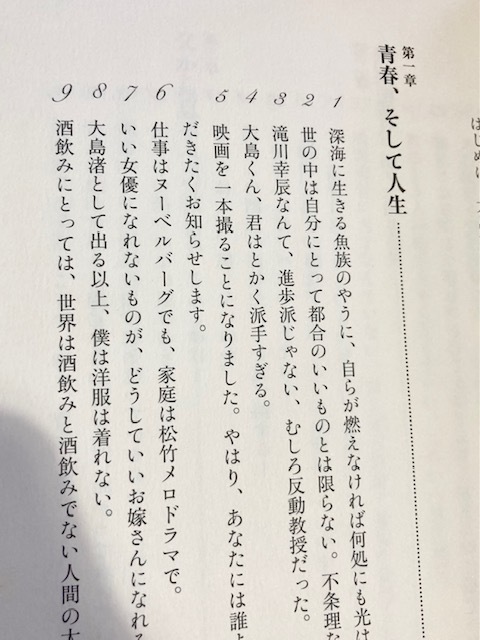 はじめに
第一章
青春、そして人生
1 深海に生きる魚族のやうに、自らが燃えなければ何処にも光は
2 世の中は自分にとって都合のいいものとは限らない。不条理な
3 滝川幸辰なんて、進歩派じゃない、むしろ反動教授だった。
4 大島くん、君はとかく派手すぎる。
5 映画を一本撮ることになりました。やはり、あなたには誰よ
だきたくお知らせします。
6 仕事はヌーベルバーグでも、家庭は松竹メロドラマで。
7 いい女優になれないものが、どうしていいお嫁さんになれる
8 大島渚として出る以上、僕は洋服は着れない。
9 酒飲みにとっては、世界は酒飲みと酒飲みでない人間の